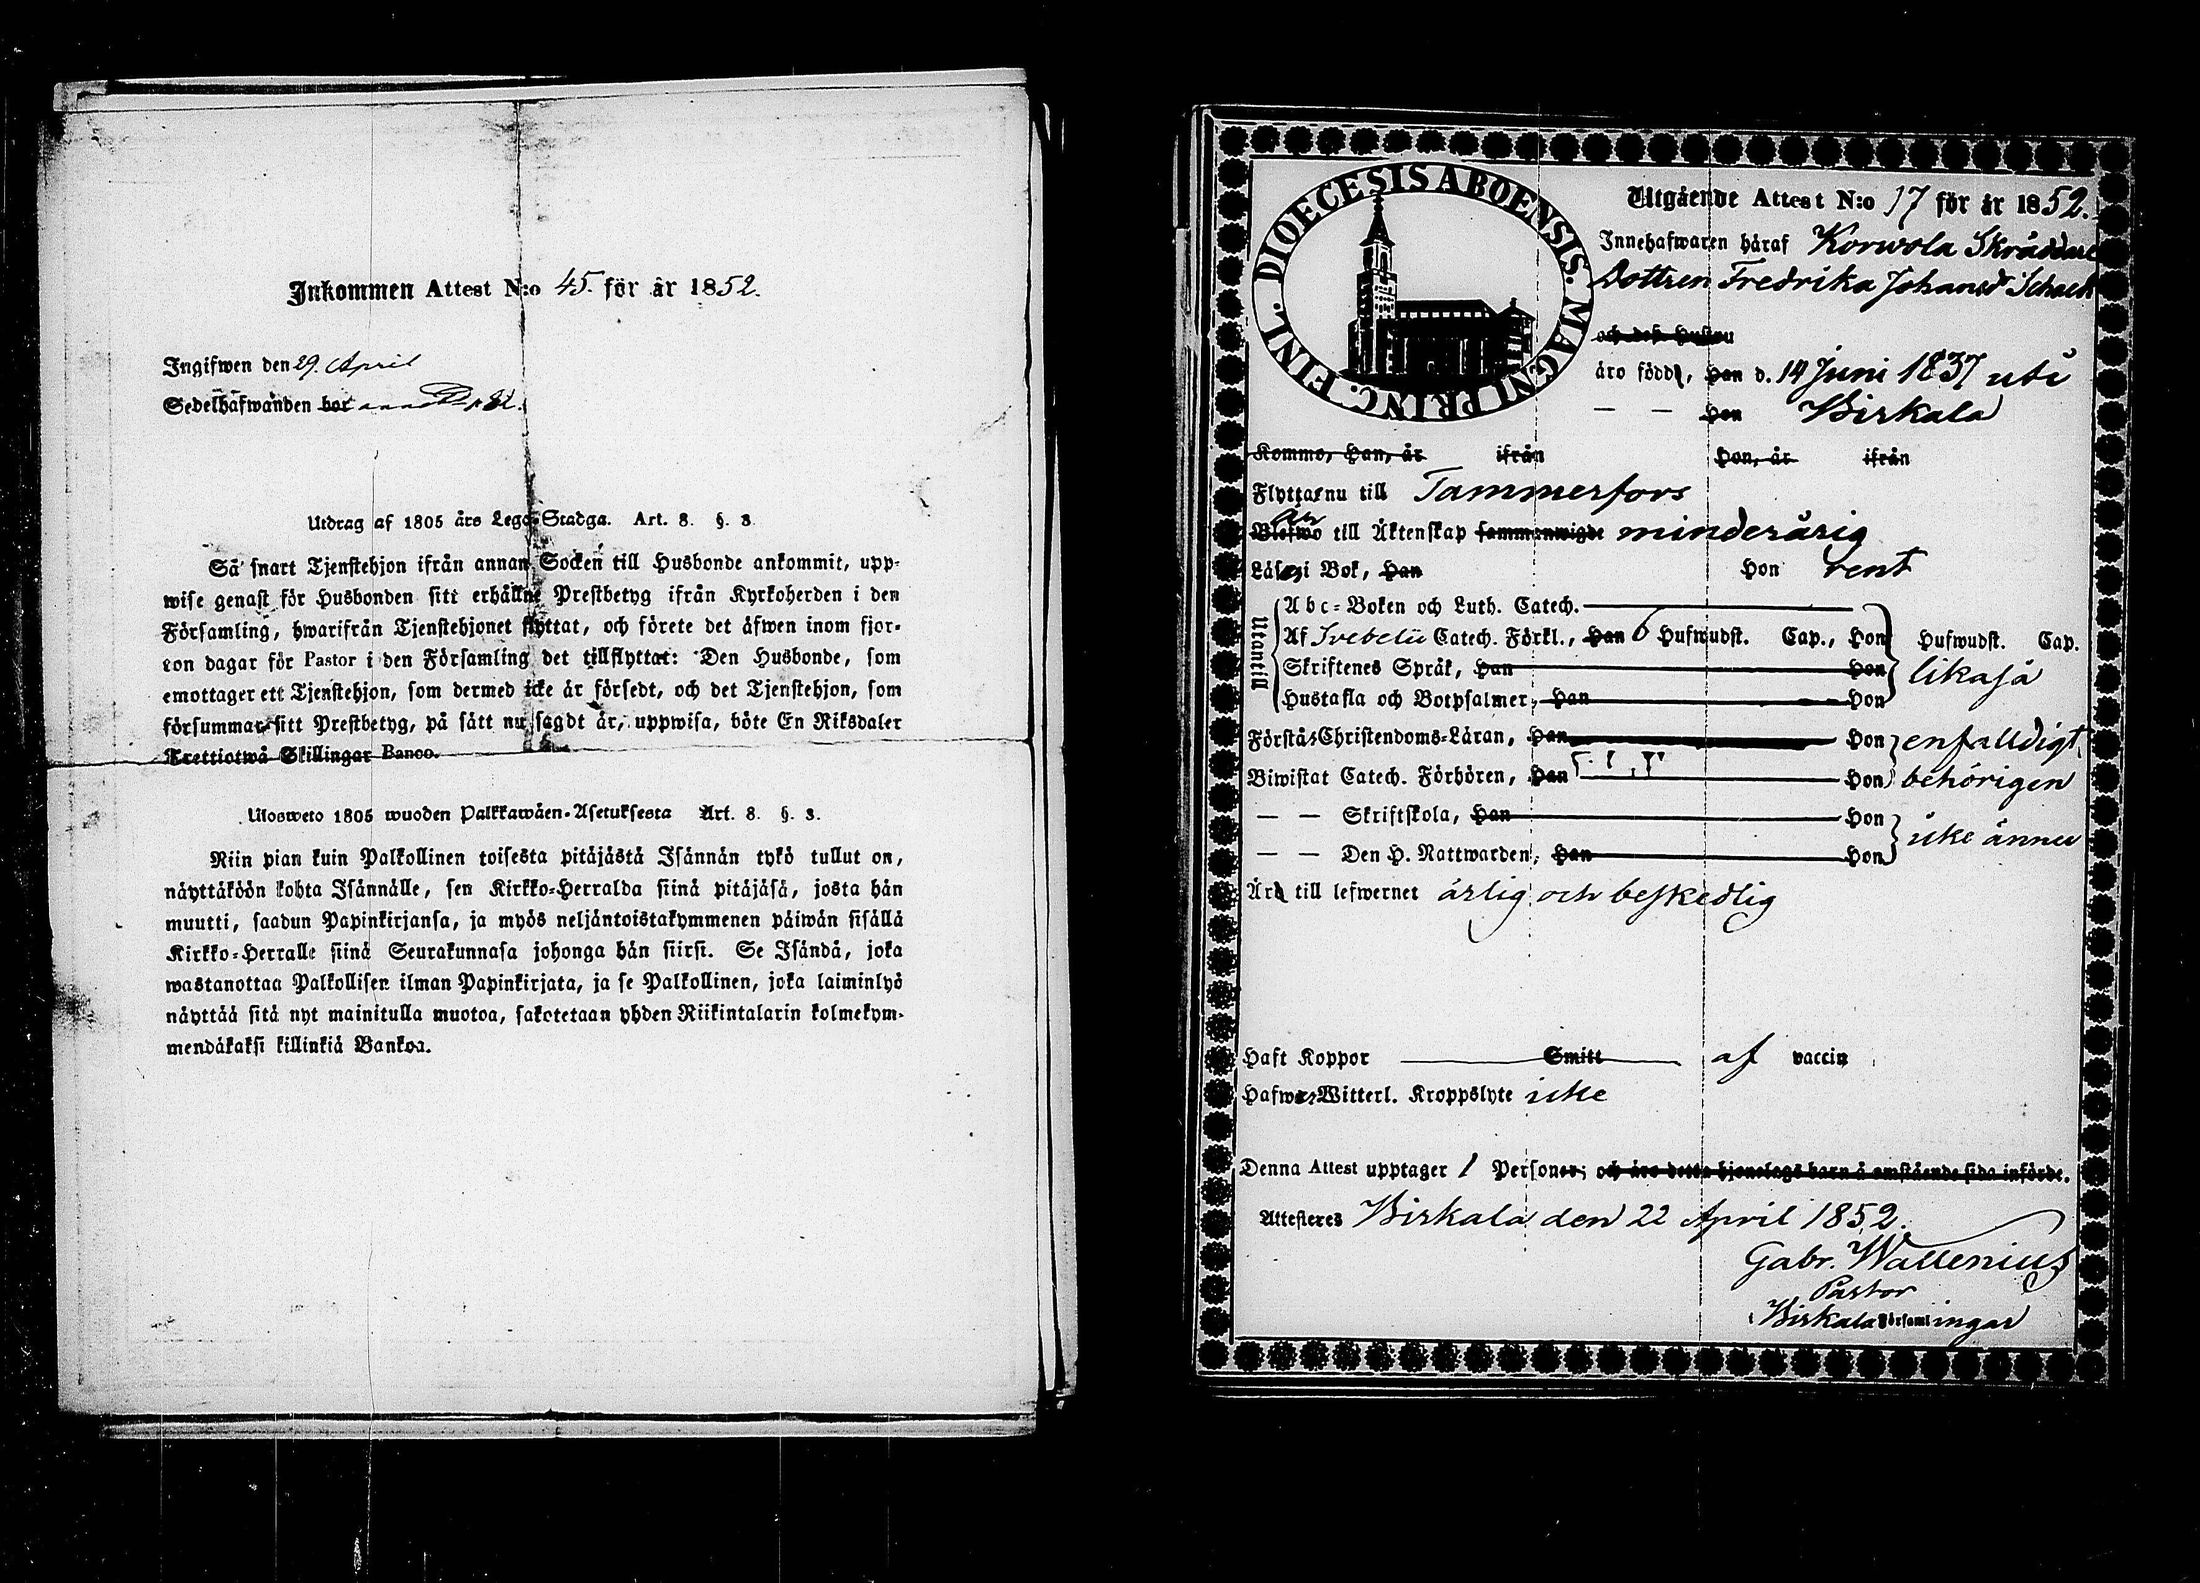 Inkommen Attest N:o 45. för år 1852.
Ingifwen den 29. April
Sedelhafwanden bor
Utdrag af 1805 års Lego-Stadga. Art. 8. §. 3.
Så snart Tjenstehjon ifrån annan Socken till Husbonde ankommit, upp-
wise genast för Husbonden sitt erhållne Prestbetyg ifrån Kyrkoherden i den
Församling, hwarifrån Tjenstehjonet flyttat, och förete det äfwen inom fjor-
ton dagar för Pastor i den Församling det tillflyttat: Den Husbonde, som
emottager ett Tjenstehjon, som dermed icke är försedt, och det Tjenstehjon, som
försummar sitt Prestbetyg, på sätt nu sagdt är, uppwisa, böte En Riksdaler
Trettiotwå Skillingar Banco.
Ulosweto 1805 wuoden Palkkawäen-Asetuksesta Art. 8. §. 3.
Niin pian kuin Palkollinen toisesta pitäjästä Isännän tykö tullut on,
näyttäköön kohta Isännälle, sen Kirkko-Herralda siinä pitäjäsä, josta hän
muutti, saadun Papinkirjansa, ja myös neljäntoistakymmenen päiwän sisällä
Kirkko-Herralle siinä Seurakunnasa johonga hän siirsi. Se Isändä, joka
wastanottaa Palkollisen ilman Papinkirjata, ja se Palkollinen, joka laiminlyö
näyttää sitä nyt mainitulla muotoa, sakotetaan yhden Riikintalarin kolmekym-
mendäkaksi killinkiä Bankoa.
DIOECESIS ABOENSIS. MAGNI PRINC. FINL.
Utgående Attest N:o 17 för år 1852.
Innehafwaren häraf Korwola Skräddare
Dottren Fredrika Johansd Schack
och dess Hustru
äro född, han d. 14 Juni 1837 uti
— — hon Birkala
Kommo, Han, år ifrån Hon, år ifrån
Flytta nu till Tammerfors
Blefwo är till Äktenskap sammanwigde minderårig
Läser i Bok, Han Hon rent
Utantill
Abc-Boken och Luth. Catech.
Af Svebelii Catech. Förkl., Han 6 Hufwudst. Cap., Hon Hufwudst. Cap.
Skriftenes Språk, Han Hon likaså
Hustafla och Botpsalmer, Han Hon
Förstå Christendoms-Läran, Han Hon enfalldigt,
Biwistat Catech. Förhören, Han Hon behörigen
— — Skriftskola, Han Hon
icke ännu
— — Den H. Nattwarden, Han Hon
Är till lefwernet ärlig och beskedlig
Haft Koppor Smitt af vaccin
Hafwer Witterl. Kroppslyte icke
Denna Attest upptager 1 Personer; och äro detta hjonelags barn å omstående sida införde.
Attesteres Birkala den 22 April 1852.
Gabr. Wallenius
Pastor
Birkala Församlingar